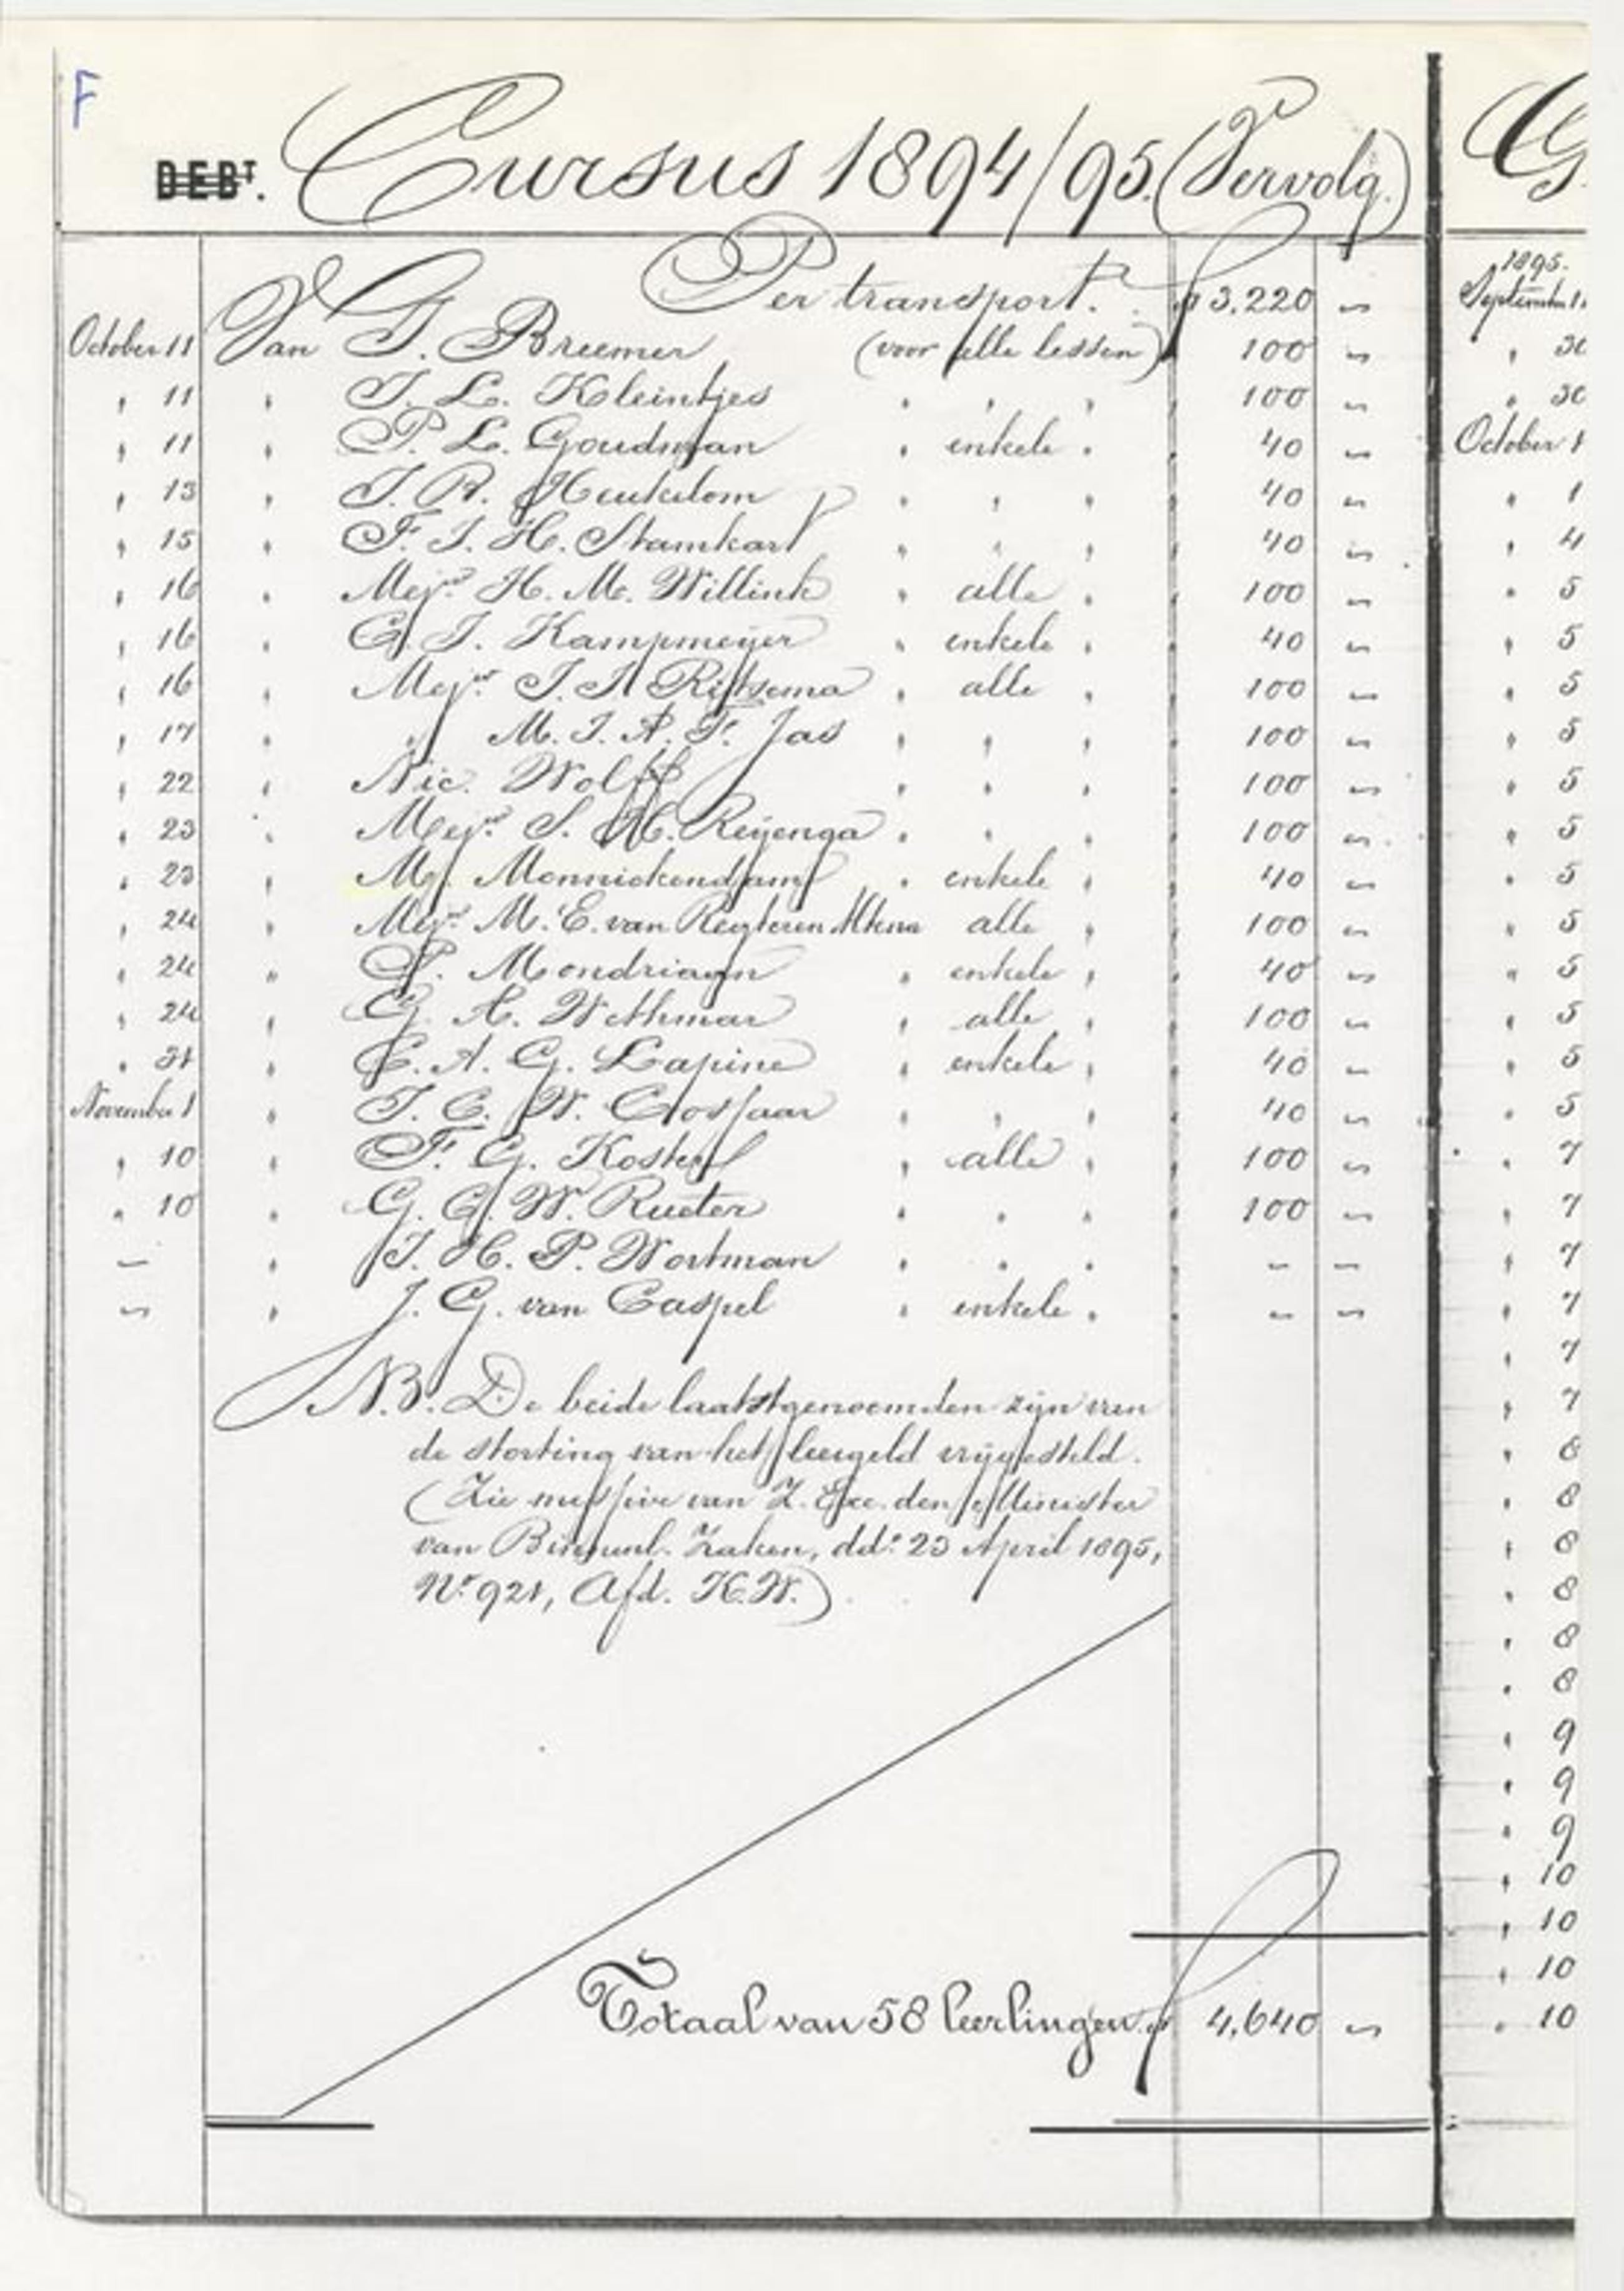 F
DEBT. Cursus 1894/95. (Vervolg.)
Per transport. f 3.220 "
October 11 Van G. Breemer (voor alle lessen) " 100 "
" 11 " J. L. Kleintjes " " " " 100 "
" 11 " P. L. Goudman " enkele " " 40 "
" 13 " J. R. Heukelom " " " " 40 "
" 15 " F. J. H. Stamkart " " " " 40 "
" 16 " Mejr. H. M. Willink " alle " " 100 "
" 16 " C. J. Kampmeijer " enkele " " 40 "
" 16 " Mejr. J. J. Ritsema " alle " " 100 "
" 17 " " M. J. A. F. Jas " " " " 100 "
" 22 " Nic. Wolff " " " " 100 "
" 23 " Mejr. S. H. Reijenga " " " " 100 "
" 23 " M. Monnickendam " enkele " " 40 "
" 24 " Mejr. M. E. van Regteren Altena alle " " 100 "
" 24 " P. Mondriaan " enkele " " 40 "
" 24 " G. H. Wethmar " alle " " 100 "
" 31 " E. A. G. Lapine " enkele " " 40 "
November 1 " J. C. W. Cossaar " " " " 40 "
" 10 " F. G. Koster " alle " " 100 "
" 10 " G. C. W. Rueter " " " " 100 "
— " J. H. P. Wortman " " " " — —
— " J. G. van Caspel " enkele " " — —
N.B. De beide laatstgenoemden zijn van
de storting van het leergeld vrijgesteld.
(Zie missive van Z. Exc. den Minister
van Binnenl. Zaken, dd° 23 April 1895,
No 921, Afd. K.W.)
Totaal van 58 leerlingen f 4,640 "
1895.
September
" 30
" 30
October 1
" 1
" 4
" 5
" 5
" 5
" 5
" 5
" 5
" 5
" 5
" 5
" 5
" 5
" 5
" 7
" 7
" 7
" 7
" 7
" 7
" 8
" 8
" 8
" 8
" 8
" 8
" 9
" 9
" 9
" 10
" 10
" 10
" 10